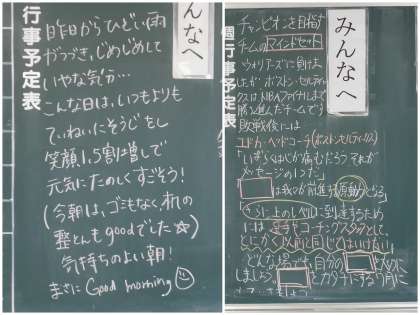 んなへ
行事予定表
昨日からひどい雨
がつづき、じめじめして
いやな気分…
こんな日は、いつもよりも
ていねいにそうじをし
笑顔1.5割増しで
元気にたのしくすごそう!
(今朝は、ゴミもなく、机の
整とんもgoodでした☆)
気持ちのよい朝!
まさにGood morning
みんなへ
行事予定表
チャンピオンを目指す
チームのマインドセット
ウォリアーズに負けは
したが ボストン・セルティッ
クスはNBAファイナルまで
勝ち進んだチームです
敗戦後には
ユドカ・ヘッドコーチ(ボストン・セルティックス)
「いずらくは心が痛むだろう それが
メッセージの1つだ」
は我々が前進する原動力となる」
「さらに上のレベルに到達するため
には 選手やコーチングスタッフとして、
とにかく以前と同じではいけない」
どんな場でも、自分の
しましょう。
をカタチにする